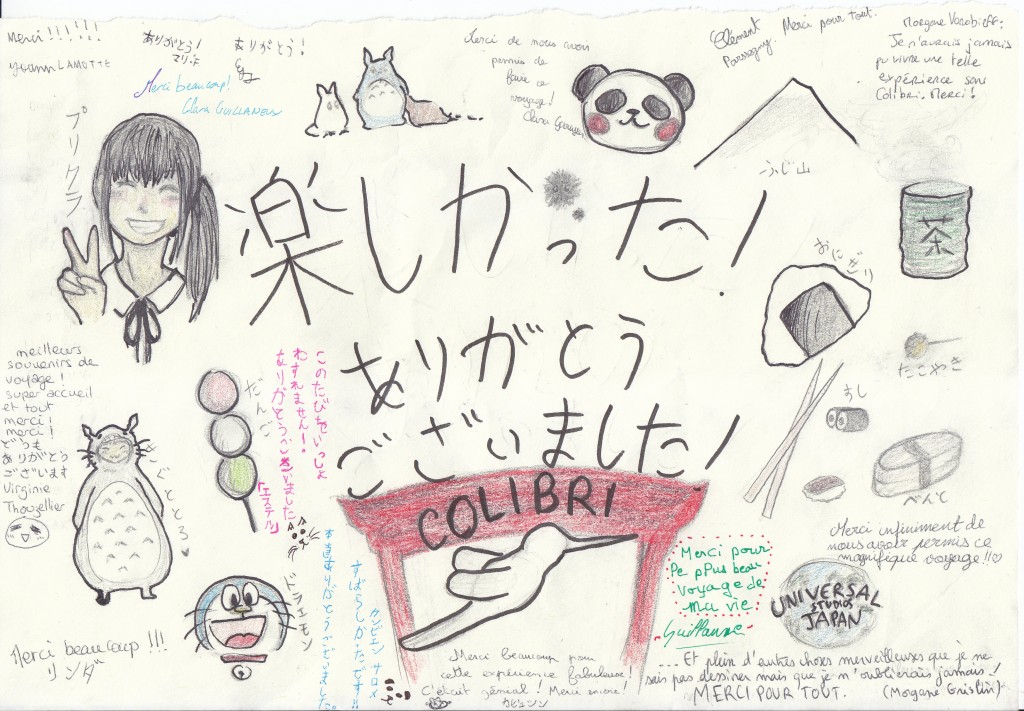 Merci!!!!!!
Yoann LAMOTTE
ありがとう!
マリ、ド
ありがとう!
Merci beaucoup!
Clara GUILLANEUX
Merci de nous avoir
permis de
faire ce
voyage!
Clara
Clément Merci pour tout.
Morgane
Je n'aurais jamais
pu vivre une telle
expérience sans
Colibri. Merci!
プリクラ
ふじ山
茶
楽しかった!
おにぎり
ありがとう
ございました!
たこやき
meilleurs
souvenirs de
voyage!
super accueil
et tout
merci!
merci!
どうも
ありがとう
ございます
Virginie
Thouzellier
だんご
このたびをいっしょ
わすれません!
ありがとうございました
「エステル」
すし
べんと
ととろ♥
COLIBRI
ドラエモン
すばらしかたです!!
本当ありがとうございました。
Merci pour
le plus beau
voyage de
ma vie
Guillaume
Merci infiniment de
nous avoir permis ce
magnifique voyage!!♡
UNIVERSAL
STUDIOS
JAPAN
Merci beaucoup!!!
リンダ
Merci beaucoup pour
cette expérience fabuleuse!
C'était génial! Merci encore!
...Et plein d'autres choses merveilleuses que je ne
sais pas dessiner mais que je n'oublierais jamais!
MERCI POUR TOUT.
(Morgane Grislin)